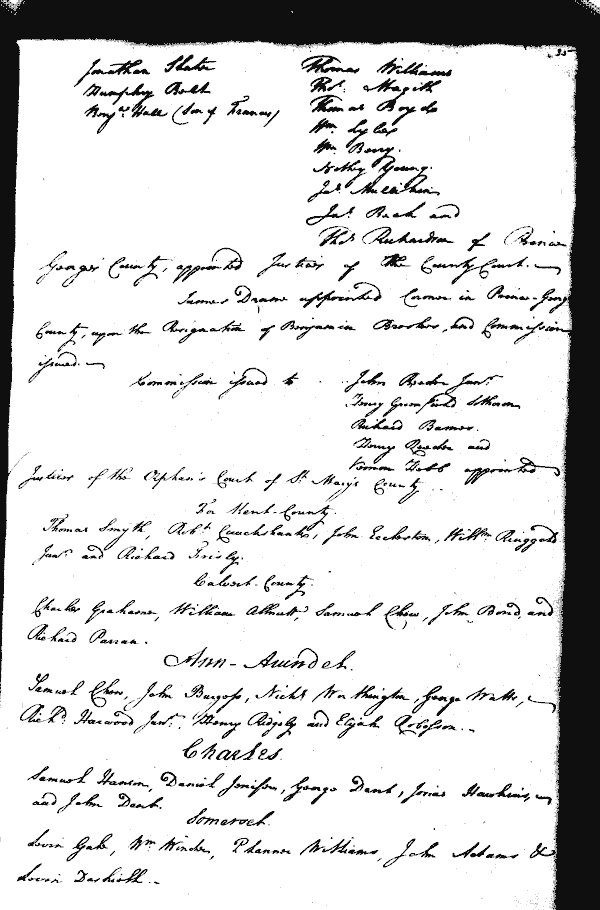 35
Jonathan Slater Thomas Williams
Humphry Belt Thos. Magill
Benja. Hall (Son of Francis) Thomas Boyde
Wm. Lyles
Wm. Berry.
Young.
Jas. Mullikin
Jas. Beck and
Thos. Richardson of Prince
Georges County, appointed Justices of the County Court.
James Drane appointed Coroner in Prince-Georg
County, upon the Resignation of Benjamin Brookes, and Commission
issued.
Commission issued to John Reeder Junr.
Henry Greenfield Sothoron
Richard Barnes.
Henry Reeder and
Vernon Hebb appointed
Justices of the Orphan's Court of St. Mary's County..
For Kent-County.
Thomas Smyth, Robt. Cruckshanks, John Eccleston, Willm. Ringgold
Junr. and Richard Frisby.
Calvert-County.
Charles Grahame, William Allnutt, Samuel Chew, John Bond, and
Richard Parran.
Ann-Arundel.
Samuel Chew, John Burgess, Nichs. Worthington, George Watts,
Richd. Harwood Junr., Henry Ridgely and Elijah Robosson.
Charles.
Samuel Hanson, Daniel Jenifer, George Dent, Josias Hawkins,
and John Dent.
Somerset.
Levin Gale, Wm. Winder, Planner Williams, John Adams &
Levin Dashiell.